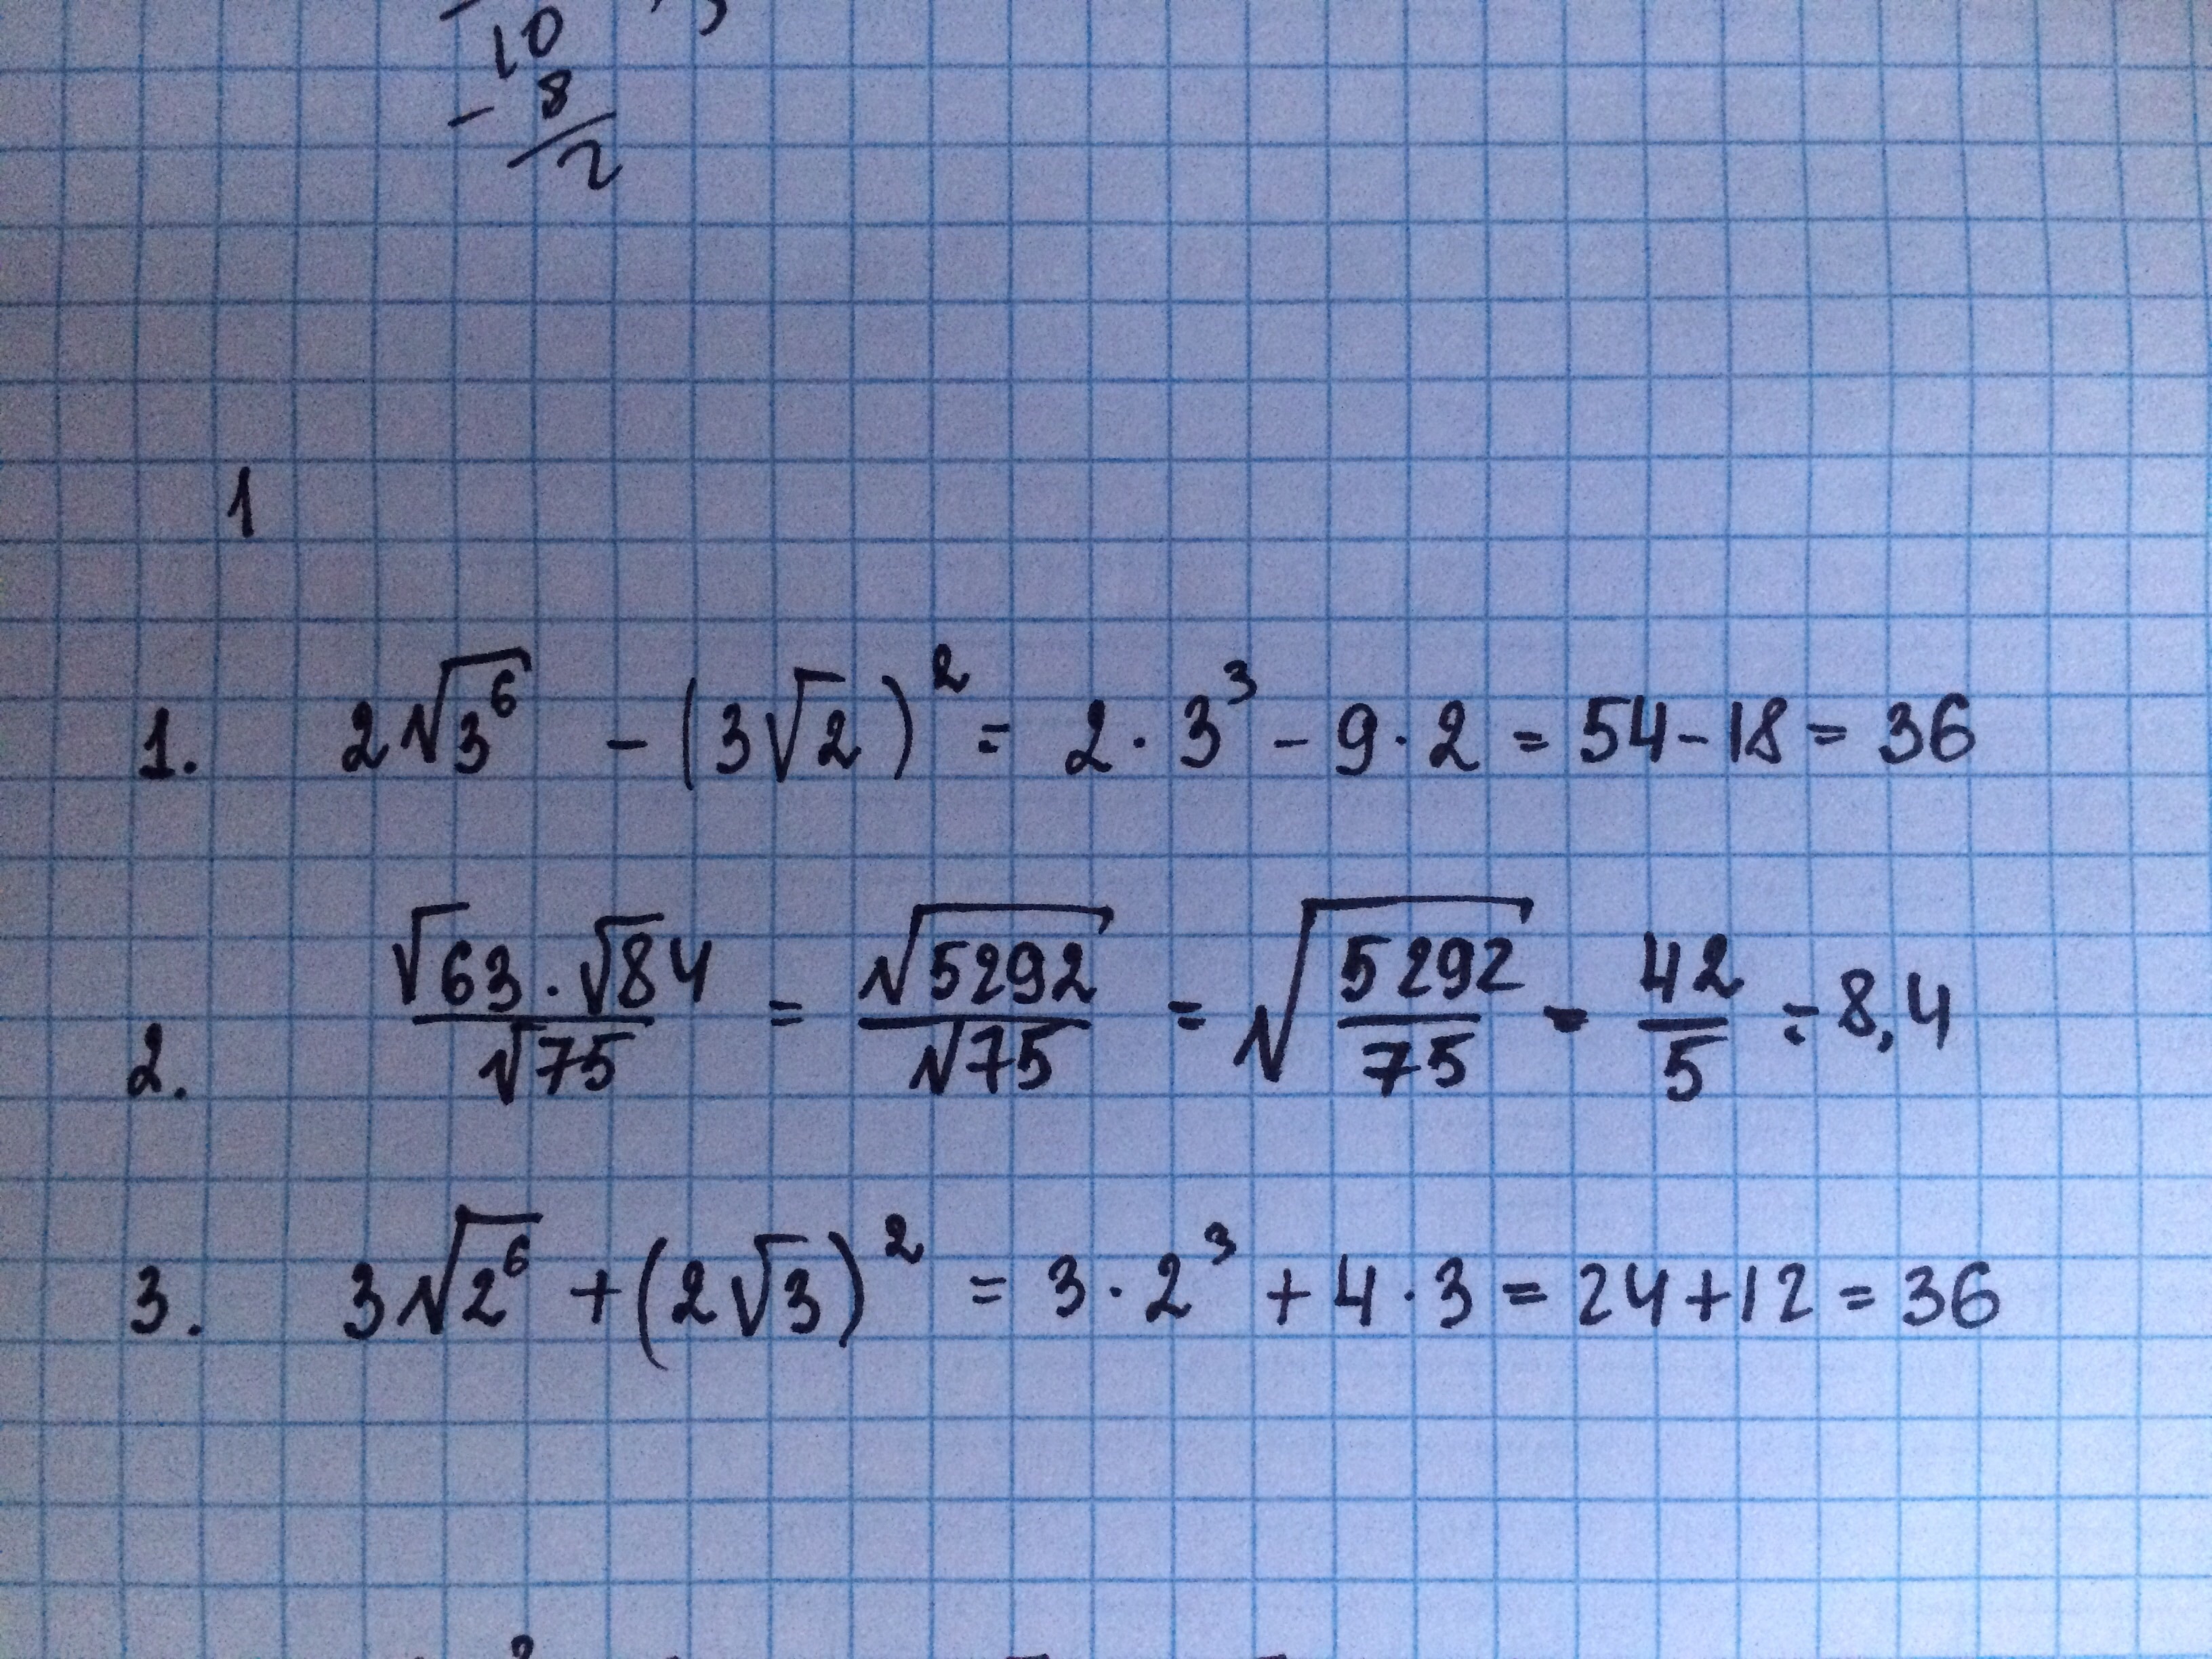 10
- 8
2
1
1. 2√3⁶ - (3√2)² = 2 · 3³ - 9 · 2 = 54 - 18 = 36
2. (√63 · √84)/√75 = √5292/√75 = √(5292/75) = 42/5 = 8,4
3. 3√2⁶ + (2√3)² = 3 · 2³ + 4 · 3 = 24 + 12 = 36